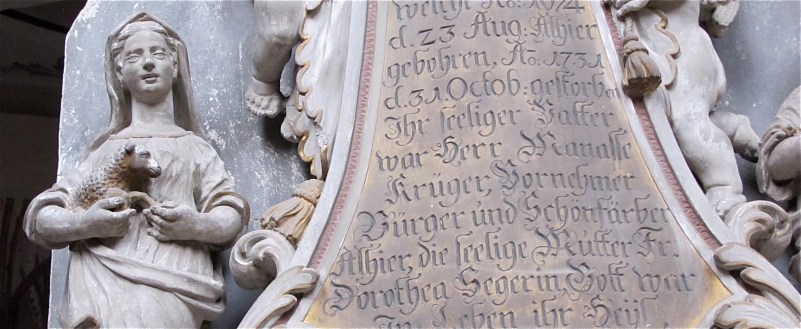 welche Ao: 1674
d. 23 Aug: Alhier
gebohren, Ao: 1731
d. 31 Octob: gestorben
Ihr seeliger Vatter
war Herr Manasse
Krüger, Vornehmer
Bürger und Schönfärber
Alhier, die seelige Mutter Fr.
Dorothea Segerin, Gott war
In Leben ihr Heÿl